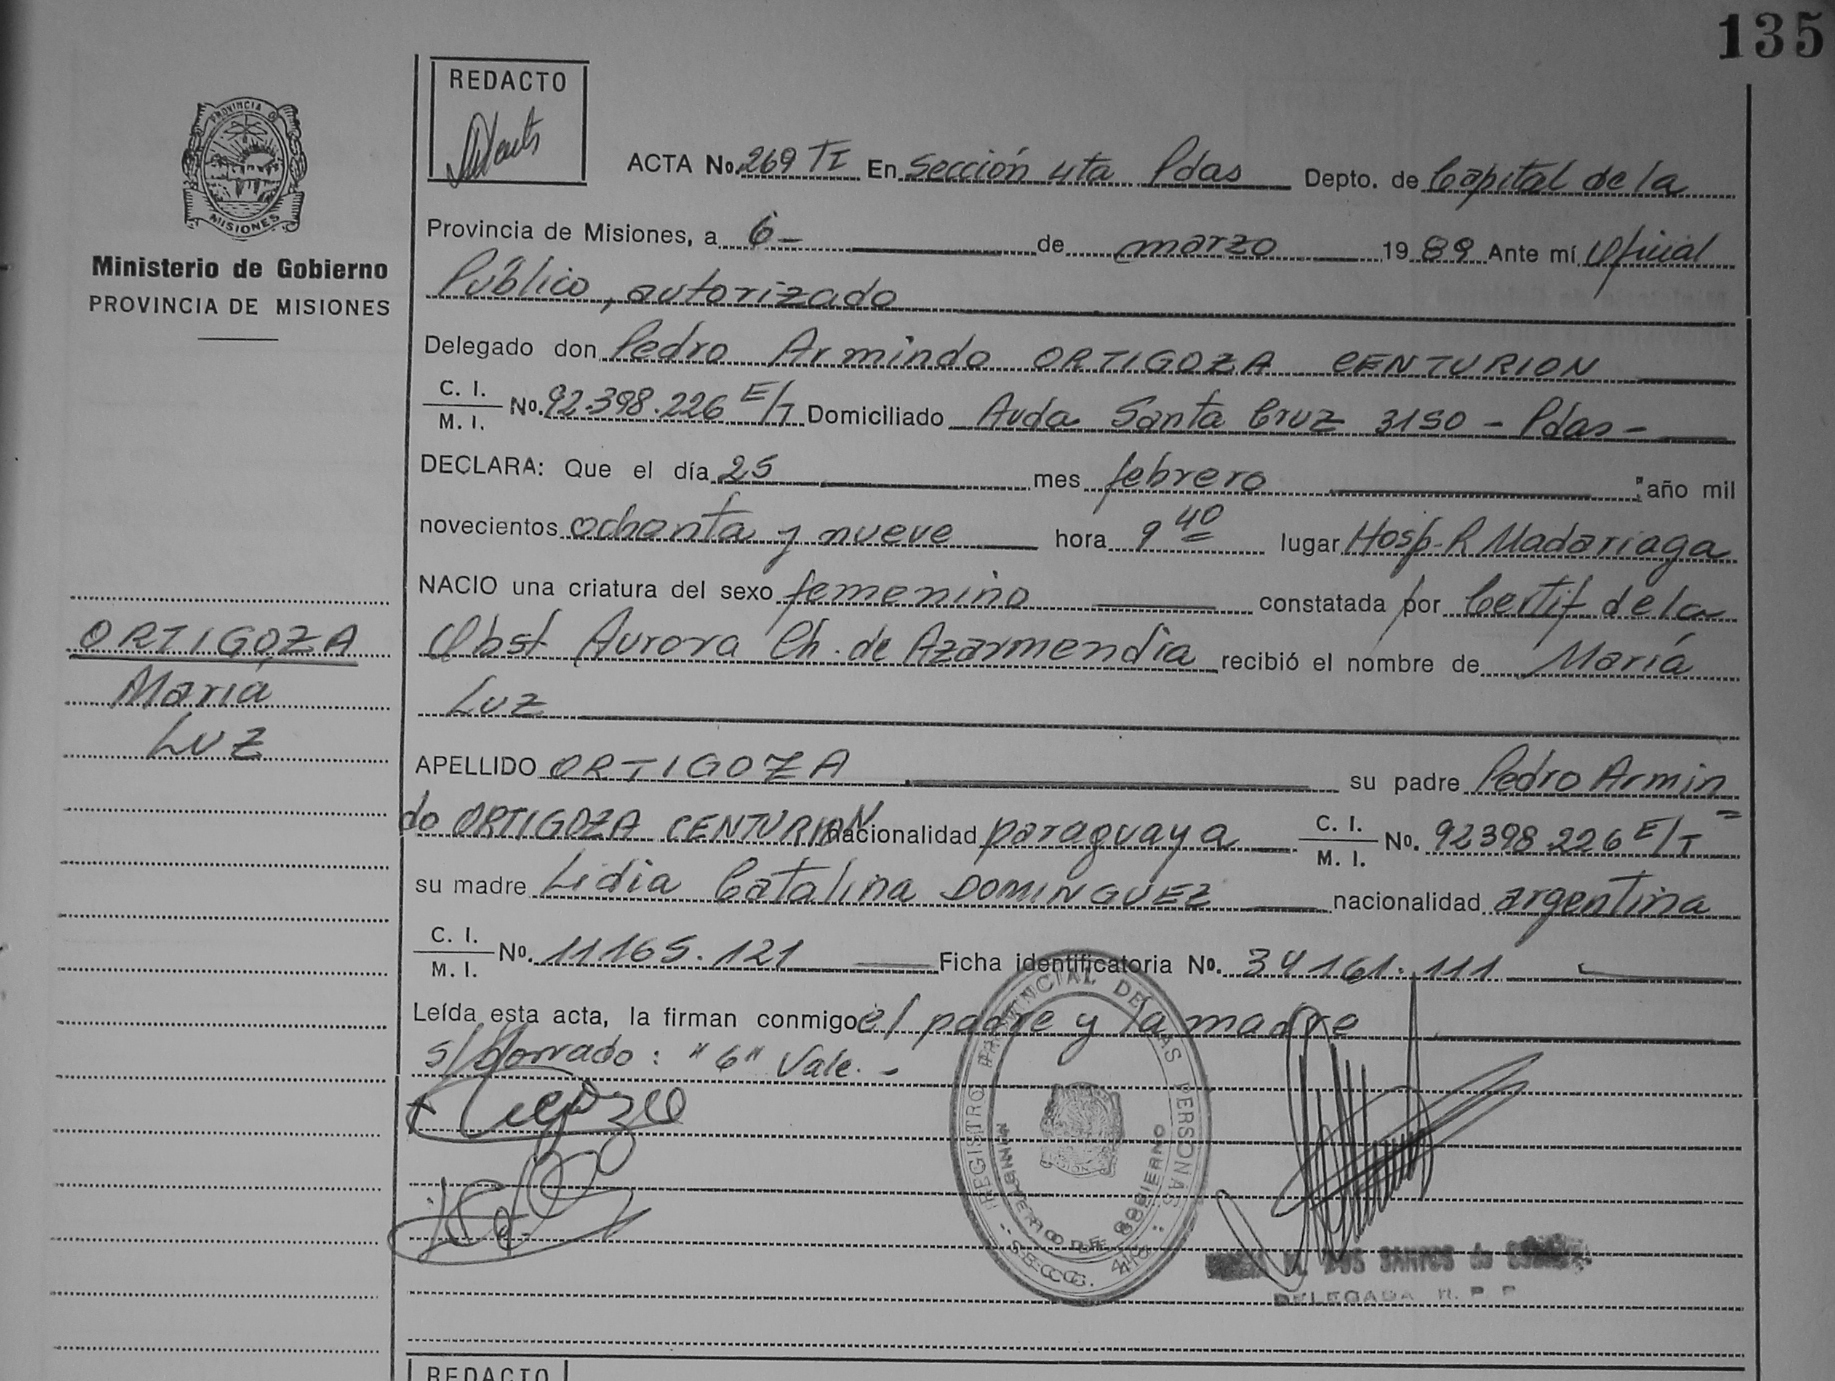 135
REDACTO
PROVINCIA DE
MISIONES
Ministerio de Gobierno
PROVINCIA DE MISIONES
ORTIGOZA
María
Luz
ACTA No. 269 TI En Sección 4ta Pdas Depto. de Capital de la
Provincia de Misiones, a 6 - de marzo 1989 Ante mí Oficial
Público, autorizado
Delegado don Pedro Armindo ORTIGOZA CENTURION
C. I.
M. I. No. 92.398.226 E/T Domiciliado Avda Santa Cruz 3150 - Pdas -
DECLARA: Que el día 25 mes febrero año mil
novecientos ochenta y nueve hora 9 40 lugar Hosp. R Madariaga
NACIO una criatura del sexo femenino constatada por Certif de la
Obst Aurora Ch. de Azarmendia recibió el nombre de María
Luz
APELLIDO ORTIGOZA su padre Pedro Armin
do ORTIGOZA CENTURION nacionalidad paraguaya C. I.
M. I. No. 92398.226 E/T
su madre Lidia Catalina DOMINGUEZ nacionalidad argentina
C. I.
M. I. No. 11165.121 Ficha identificatoria No. 34161.111
Leída esta acta, la firman conmigo el padre y la madre
s/borrado: "6" Vale. -
REGISTRO PROVINCIAL DE LAS PERSONAS
MINISTERIO DE GOBIERNO
SECC. 4ta
DOS SANTOS de
DELEGADA R. P. P
REDACTO